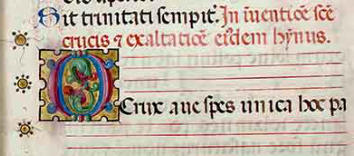 Sit trinitati sempit̄. In inventiōē sc̄ē
crucis ⁊ exaltatiōē eiꝰdem hỹnus.
O Crux ave spes unica hoc pa